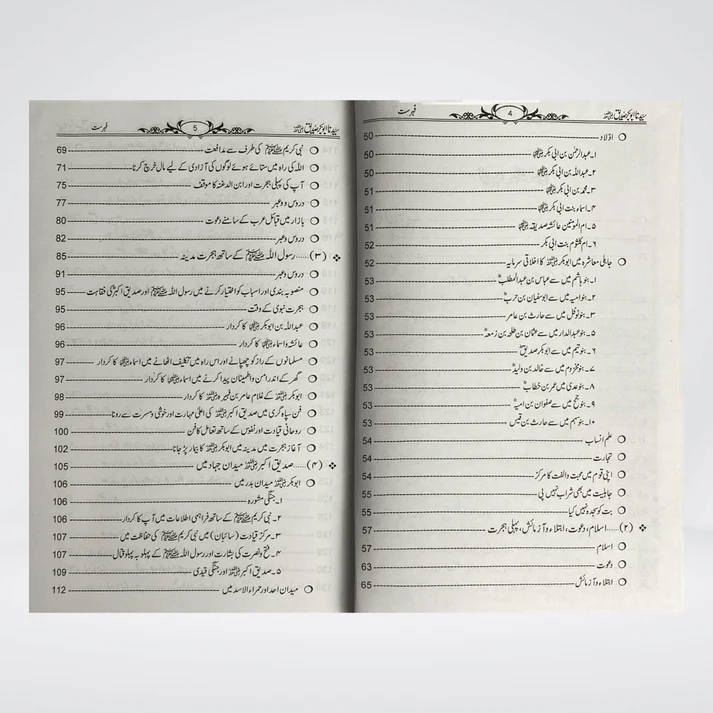 سیدنا ابوبکر صدیق رضی اللہ عنہ 4 فہرست
اولاد 50
۱۔عبدالرحمٰن بن ابی بکر رضی اللہ عنہما 50
۲۔عبداللہ بن ابی بکر رضی اللہ عنہما 50
۳۔محمد بن ابی بکر رضی اللہ عنہما 51
۴۔اسماء بنت ابی بکر رضی اللہ عنہما 51
۵۔ام المومنین عائشہ صدیقہ رضی اللہ عنہا 51
۶۔ام کلثوم بنت ابی بکر 52
جاہلی معاشرہ میں ابوبکر رضی اللہ عنہ کا اخلاقی سرمایہ 52
۱۔بنو ہاشم میں سے عباس بن عبدالمطلب 53
۲۔بنوامیہ میں سے ابوسفیان بن حرب 53
۳۔بنونوفل میں سے حارث بن عامر 53
۵۔بنوعبدالدار میں سے عثمان بن طلحہ بن زمعہ 53
۶۔بنوتیم میں سے ابوبکر صدیق 53
۷۔بنومخزوم میں سے خالد بن ولید 53
۸۔بنوعدی میں عمر بن خطاب 53
۹۔بنوجمح میں سے صفوان بن امیہ 53
۱۰۔بنوسہم میں سے حارث بن قیس 53
علم انساب 54
تجارت 54
اپنی قوم میں محبت والفت کا مرکز 54
جاہلیت میں بھی شراب نہیں پی 55
بت کو سجدہ نہیں کیا 55
(۲).....اسلام، دعوت، ابتلاء و آزمائش، پہلی ہجرت 57
اسلام 57
دعوت 63
ابتلاء و آزمائش 65
سیدنا ابوبکر صدیق رضی اللہ عنہ 5 فہرست
نبی کریم ﷺ کی طرف سے مدافعت 69
اللہ کی راہ میں ستائے ہوئے لوگوں کی آزادی کے لیے مال خرچ کرنا 71
آپ کی پہلی ہجرت اور ابن الدغنہ کا موقف 75
دروس وعبر 77
بازار میں قبائل عرب کے سامنے دعوت 80
دروس وعبر 82
(۳).....رسول اللہ ﷺ کے ساتھ ہجرت مدینہ 85
دروس وعبر 91
منصوبہ بندی اور اسباب کو اختیار کرنے میں رسول اللہ ﷺ اور صدیق اکبر کی فقاہت 95
ہجرت نبوی کے وقت 95
عبداللہ بن ابوبکر رضی اللہ عنہما کا کردار 96
عائشہ واسماء رضی اللہ عنہما کا کردار 96
مسلمانوں کے راز کو چھپانے اور اس راہ میں تکلیف اٹھانے میں اسماء رضی اللہ عنہا کا کردار 97
گھر کے اندر امن واطمینان پیدا کرنے میں اسماء رضی اللہ عنہا کا کردار 97
ابوبکر رضی اللہ عنہ کے غلام عامر بن فہیرہ رضی اللہ عنہ کا کردار 98
فن سپاہ گری میں صدیق اکبر رضی اللہ عنہ کی اعلیٰ مہارت اور خوشی ومسرت سے رونا 99
روحانی قیادت اور نفوس کے ساتھ تعامل کا فن 100
آغاز ہجرت میں مدینہ میں ابوبکر رضی اللہ عنہ کا بیمار پڑ جانا 102
(۴).....صدیق اکبر رضی اللہ عنہ میدان جہاد میں 105
ابوبکر رضی اللہ عنہ میدان بدر میں 106
۱۔جنگی مشورہ 106
۲۔نبی کریم ﷺ کے ساتھ فراہمی اطلاعات میں آپ کا کردار 106
۳۔مرکز قیادت (سائبان) میں نبی کریم ﷺ کی حفاظت میں 107
۴۔فتح ونصرت کی بشارت اور رسول اللہ ﷺ کے پہلو بہ پہلو قتال 107
۵۔صدیق اکبر رضی اللہ عنہ اور جنگی قیدی 109
میدان احد اور حمراء الاسد میں 112